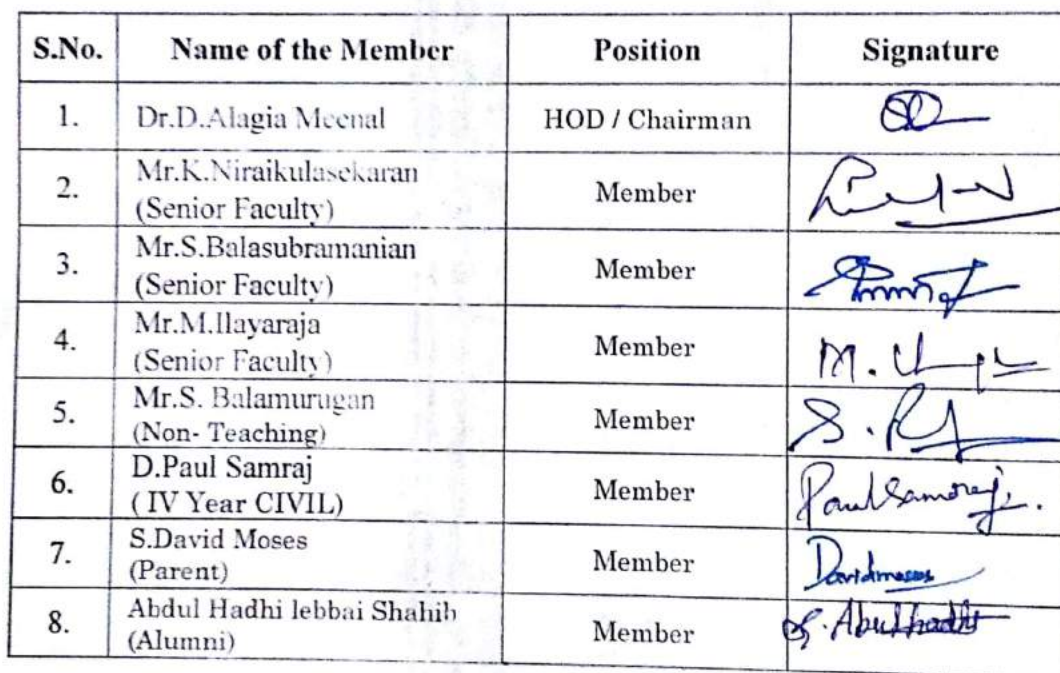 S.No. Name of the Member Position Signature
1. Dr.D.Alagia Meenal HOD / Chairman
2. Mr.K.Niraikulasekaran
(Senior Faculty) Member
3. Mr.S.Balasubramanian
(Senior Faculty) Member
4. Mr.M.Ilayaraja
(Senior Faculty) Member M.
5. Mr.S. Balamurugan
(Non- Teaching) Member S.
6. D.Paul Samraj
( IV Year CIVIL) Member PaulSamraj.
7. S.David Moses
(Parent) Member Davidmoses
8. Abdul Hadhi lebbai Shahib
(Alumni) Member S. Abdulhadhi